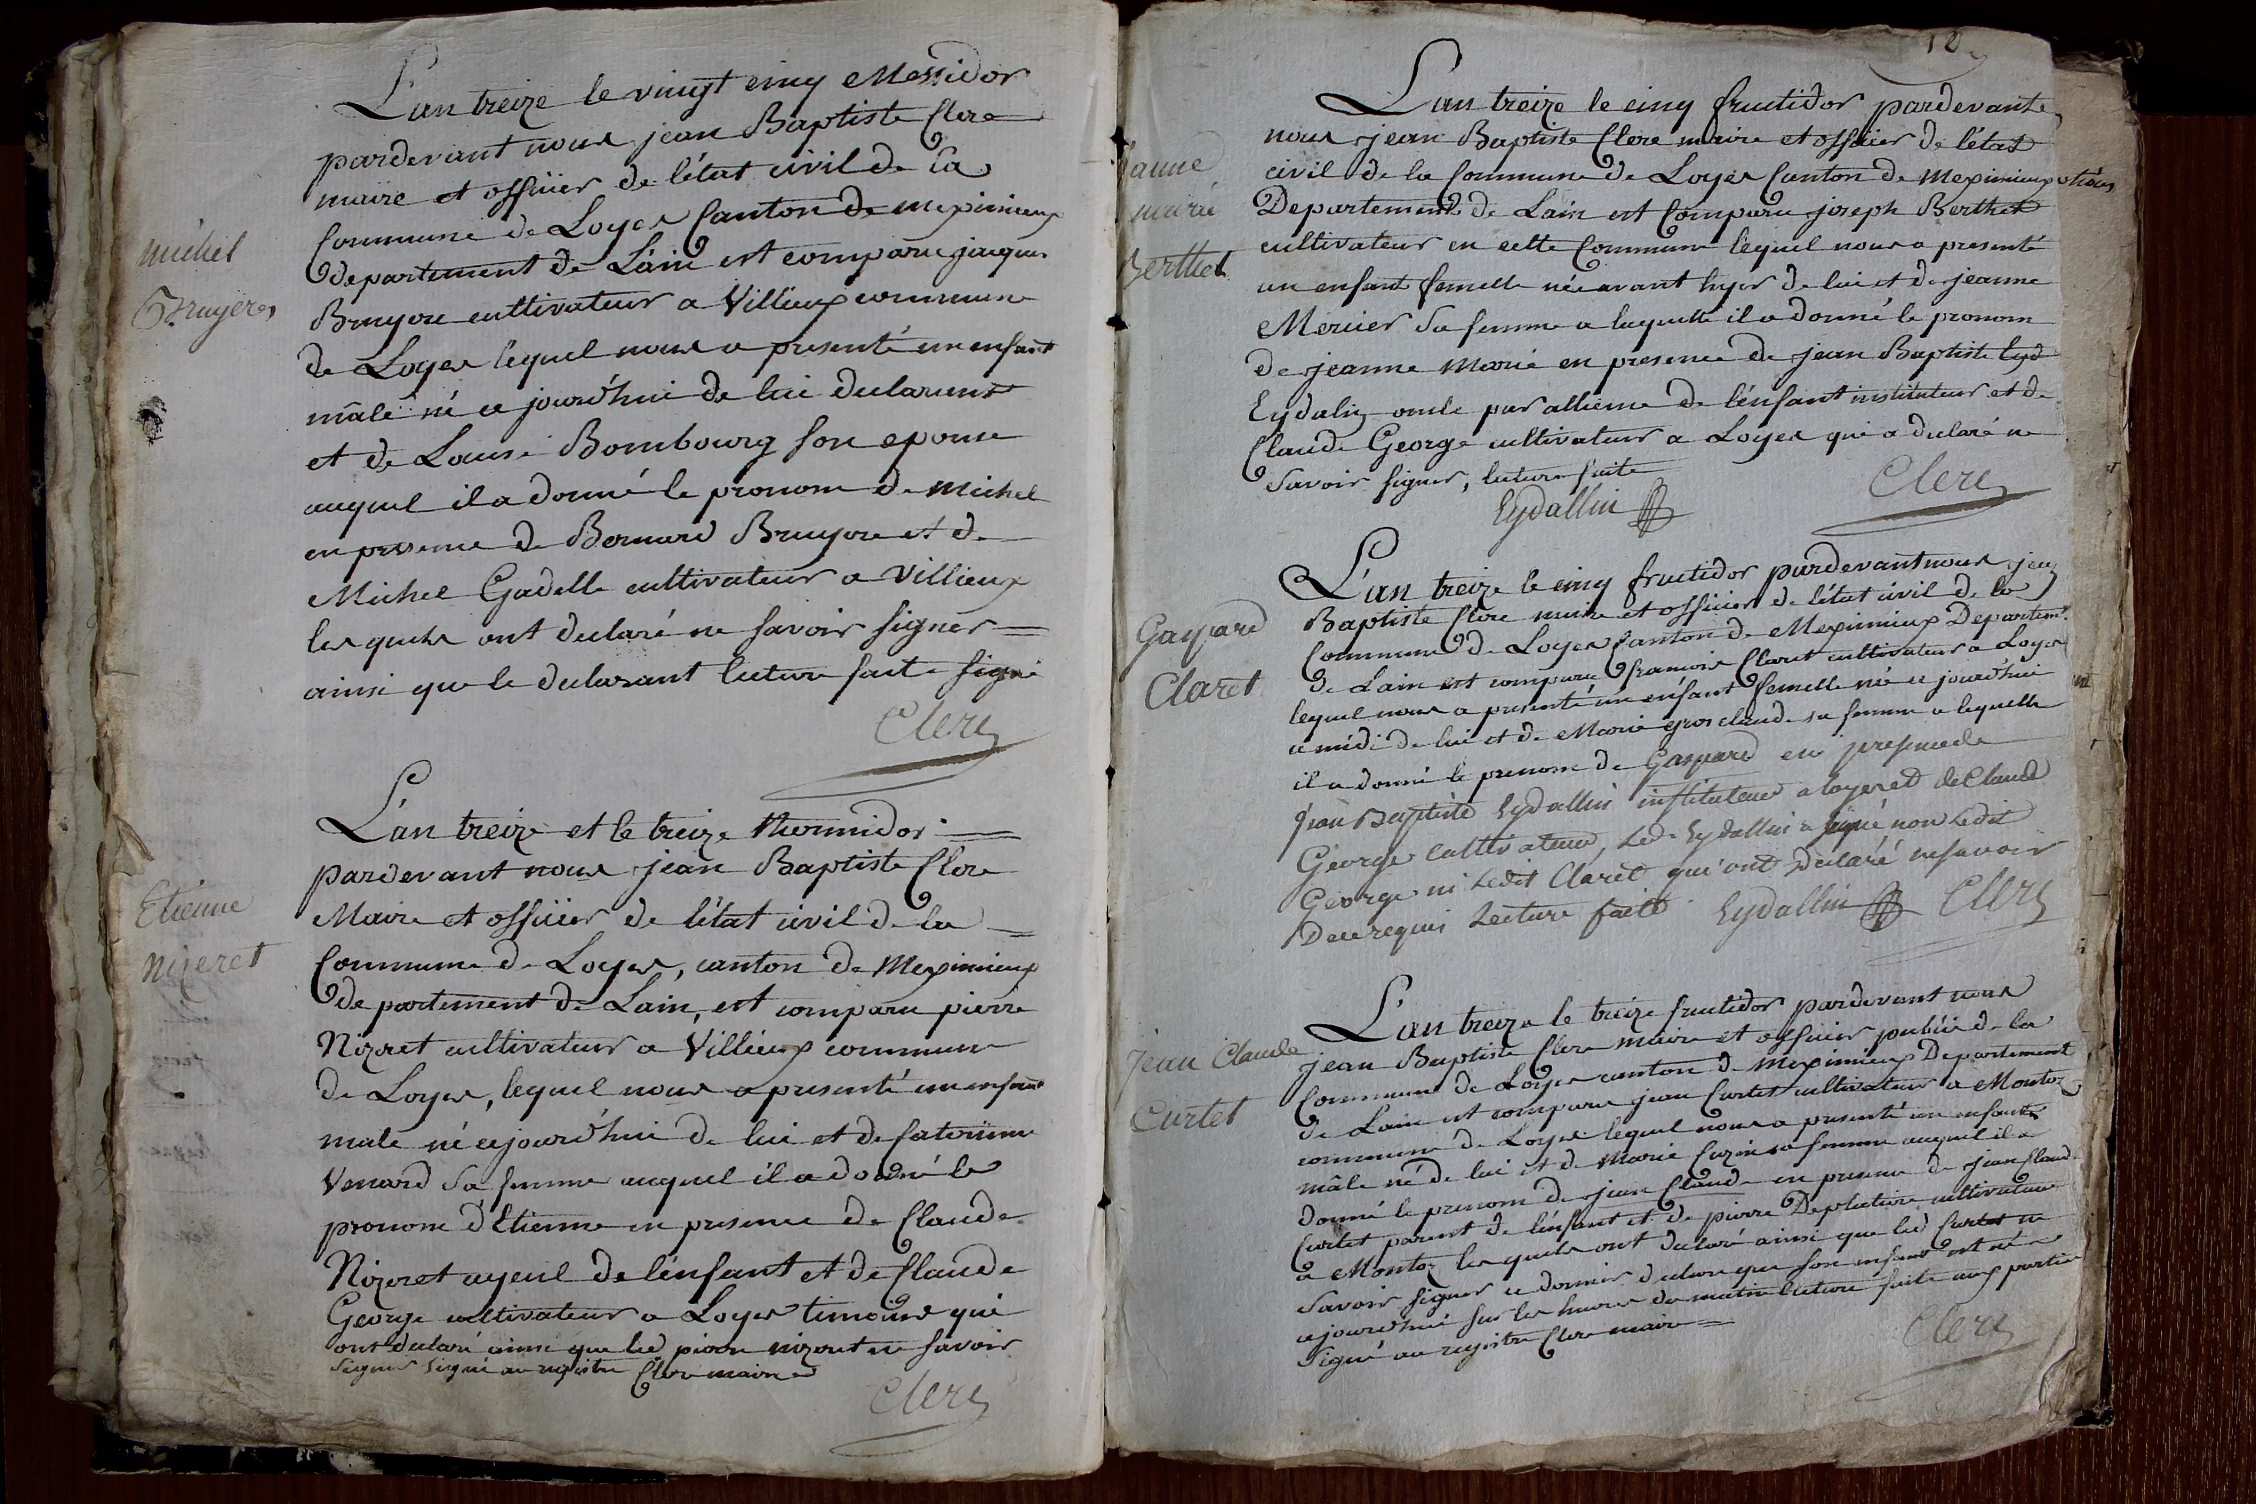 michel
Bruyere
L'an treize le vingt cinq Messidor
pardevant nous jean Baptiste Clerc
maire et officier de l'état civil de la
Commune de Loyes Canton de meximieux
departement de L'ain est comparu jacques
Bruyere cultivateur a Villieux commune
de Loyes lequel nous a presenté un enfant
mâle né ce jourd'hui de lui declarent
et de Louise Bombourg son epouse
auquel il a donné le prenom de Michel
en presence de Bernard Bruyere et de
Michel Gadelle cultivateur a Villieux
lesquels ont declaré ne savoir signer
ainsi que le declarant lecture faite signé
Clerc
Etienne
Nizeret
L'an treize et le treize thermidor
pardevant nous jean Baptiste Clerc
Maire et officier de l'état civil de la
Commune de Loyes, canton de Meximieux
departement de Lain, est comparu pierre
Nizeret cultivateur a Villieux commune
de Loyes, lequel nous a presenté un enfant
male né cejourd'hui de lui et de Caterinne
Venard sa femme auquel il a donné le
prenom d'Etienne en presence de Claude
Nizeret ayeul de l'enfant et de Claude
George cultivateur a Loyes temoins qui
ont declaré ainsi que led pierre nizeret ne savoir
signer signé au registre Clerc maire
Clerc
12
Jeanne
marie
Berthet
L'an treize le cinq fructidor pardevant
nous jean Baptiste Clerc maire et officier de l'état
civil de la Commune de Loyes Canton de Meximieux
Departement de Lain est Comparu joseph Berthet
cultivateur en cette Commune lequel nous a presenté
un enfant femelle née avant hyer de lui et de jeanne
Mercier sa femme a laquelle il a donné le prenom
de jeanne Marie en presence de jean Baptiste Eyd
Eydalin oncle par allience de l'enfant instituteur et de
Claude George cultivateur a Loyes qui a declaré ne
savoir signer, lecture faite
Eydallin Clerc
Gaspard
Claret
L'an treize le cinq fructidor pardevant nous jean
Baptiste Clerc maire et officier de l'état civil de la
Commune de Loyes Canton de Meximieux Departemt
de Lain est comparu francois Claret cultivateur a Loyes
lequel nous a presenté un enfant femelle né ce jourd'hui
a midi de lui et de Marie gros claude sa femme a laquelle
il a donné le prenom de Gaspard en presence de
jean Baptiste Eydallin instituteur a loyes et de Claude
George cultivateur, Led. Eydallin a signé non Ledit
George ni Ledit Claret qui ont Declaré ne savoir
De ce requis Lecture faite Eydallin Clerc
Jean Claude
Curtet
L'an treize le treize fructidor pardevant nous
jean Baptiste Clerc maire et officier public de la
Commune de Loyes canton de Meximieux Departement
de Lain est comparu jean Curtet cultivateur a Montoz
commune de Loyes lequel nous a presenté un enfant
mâle né de lui et de Marie Cuzin sa femme auquel il a
donné le prenom de jean Claude en presence de jean Claude
Curtet parent de l'enfant et de pierre Deplatiere cultivateur
a Montoz lesquels ont declaré ainsi que led Curtet ne
savoir signer ce dernier declare que son enfant est né
cejourd'hui sur les heures du matin lecture faite aux parties
Signé au registre Clerc maire
Clerc